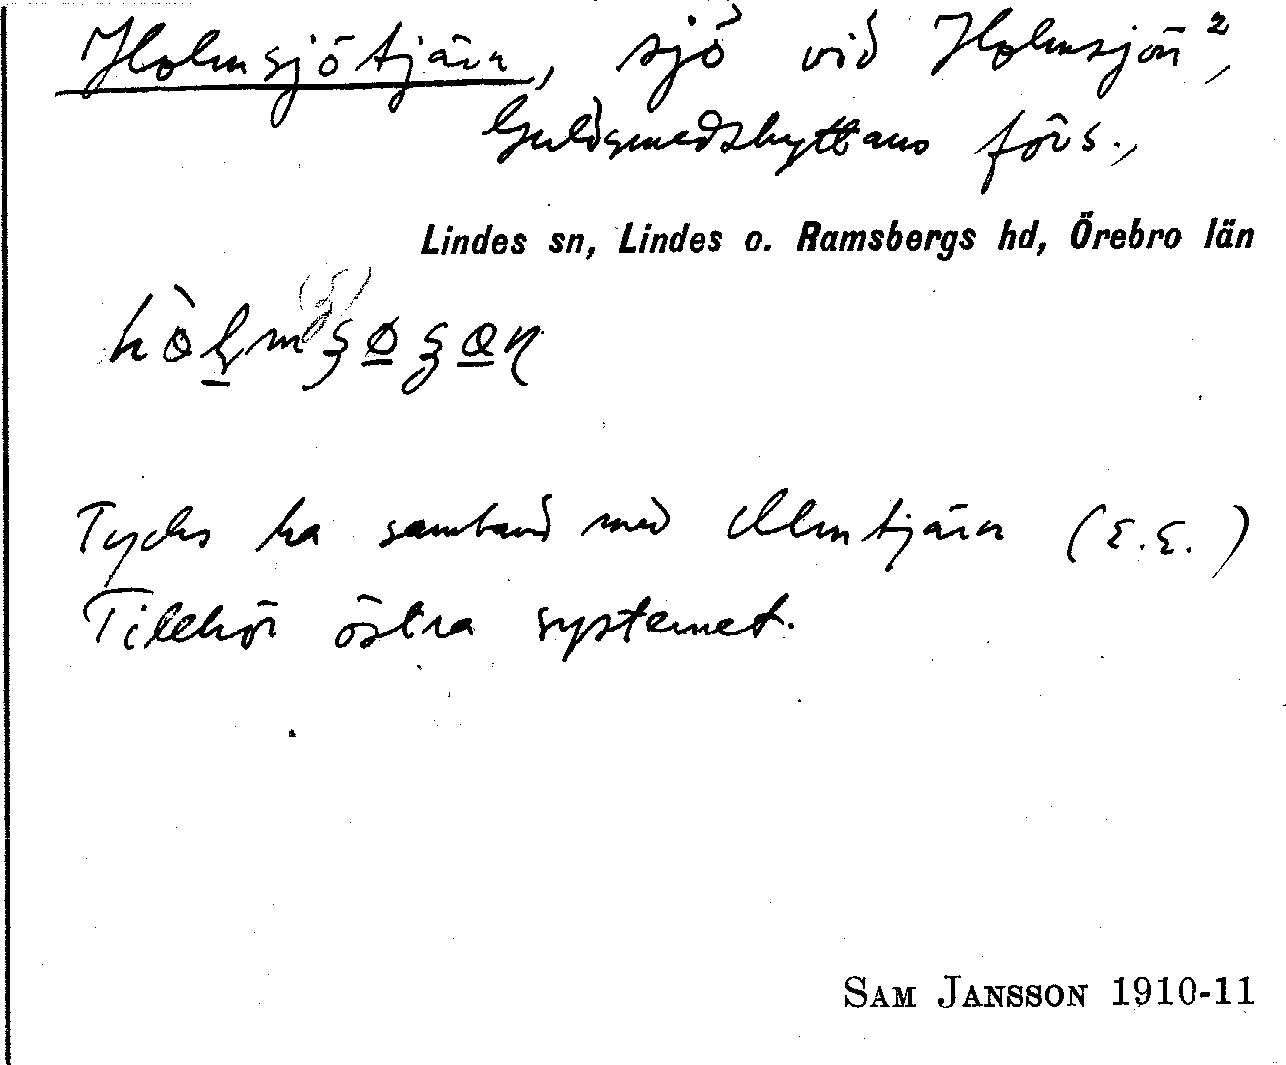 Holmsjötjärn, sjö vid Holmsjön²,
Guldsmedshyttans förs.,
Lindes sn, Lindes o. Ramsbergs hd, Örebro län
Tycks ha samband med Älmtjärn (E.E.)
Tillhör östra systemet.
SAM JANSSON 1910-11